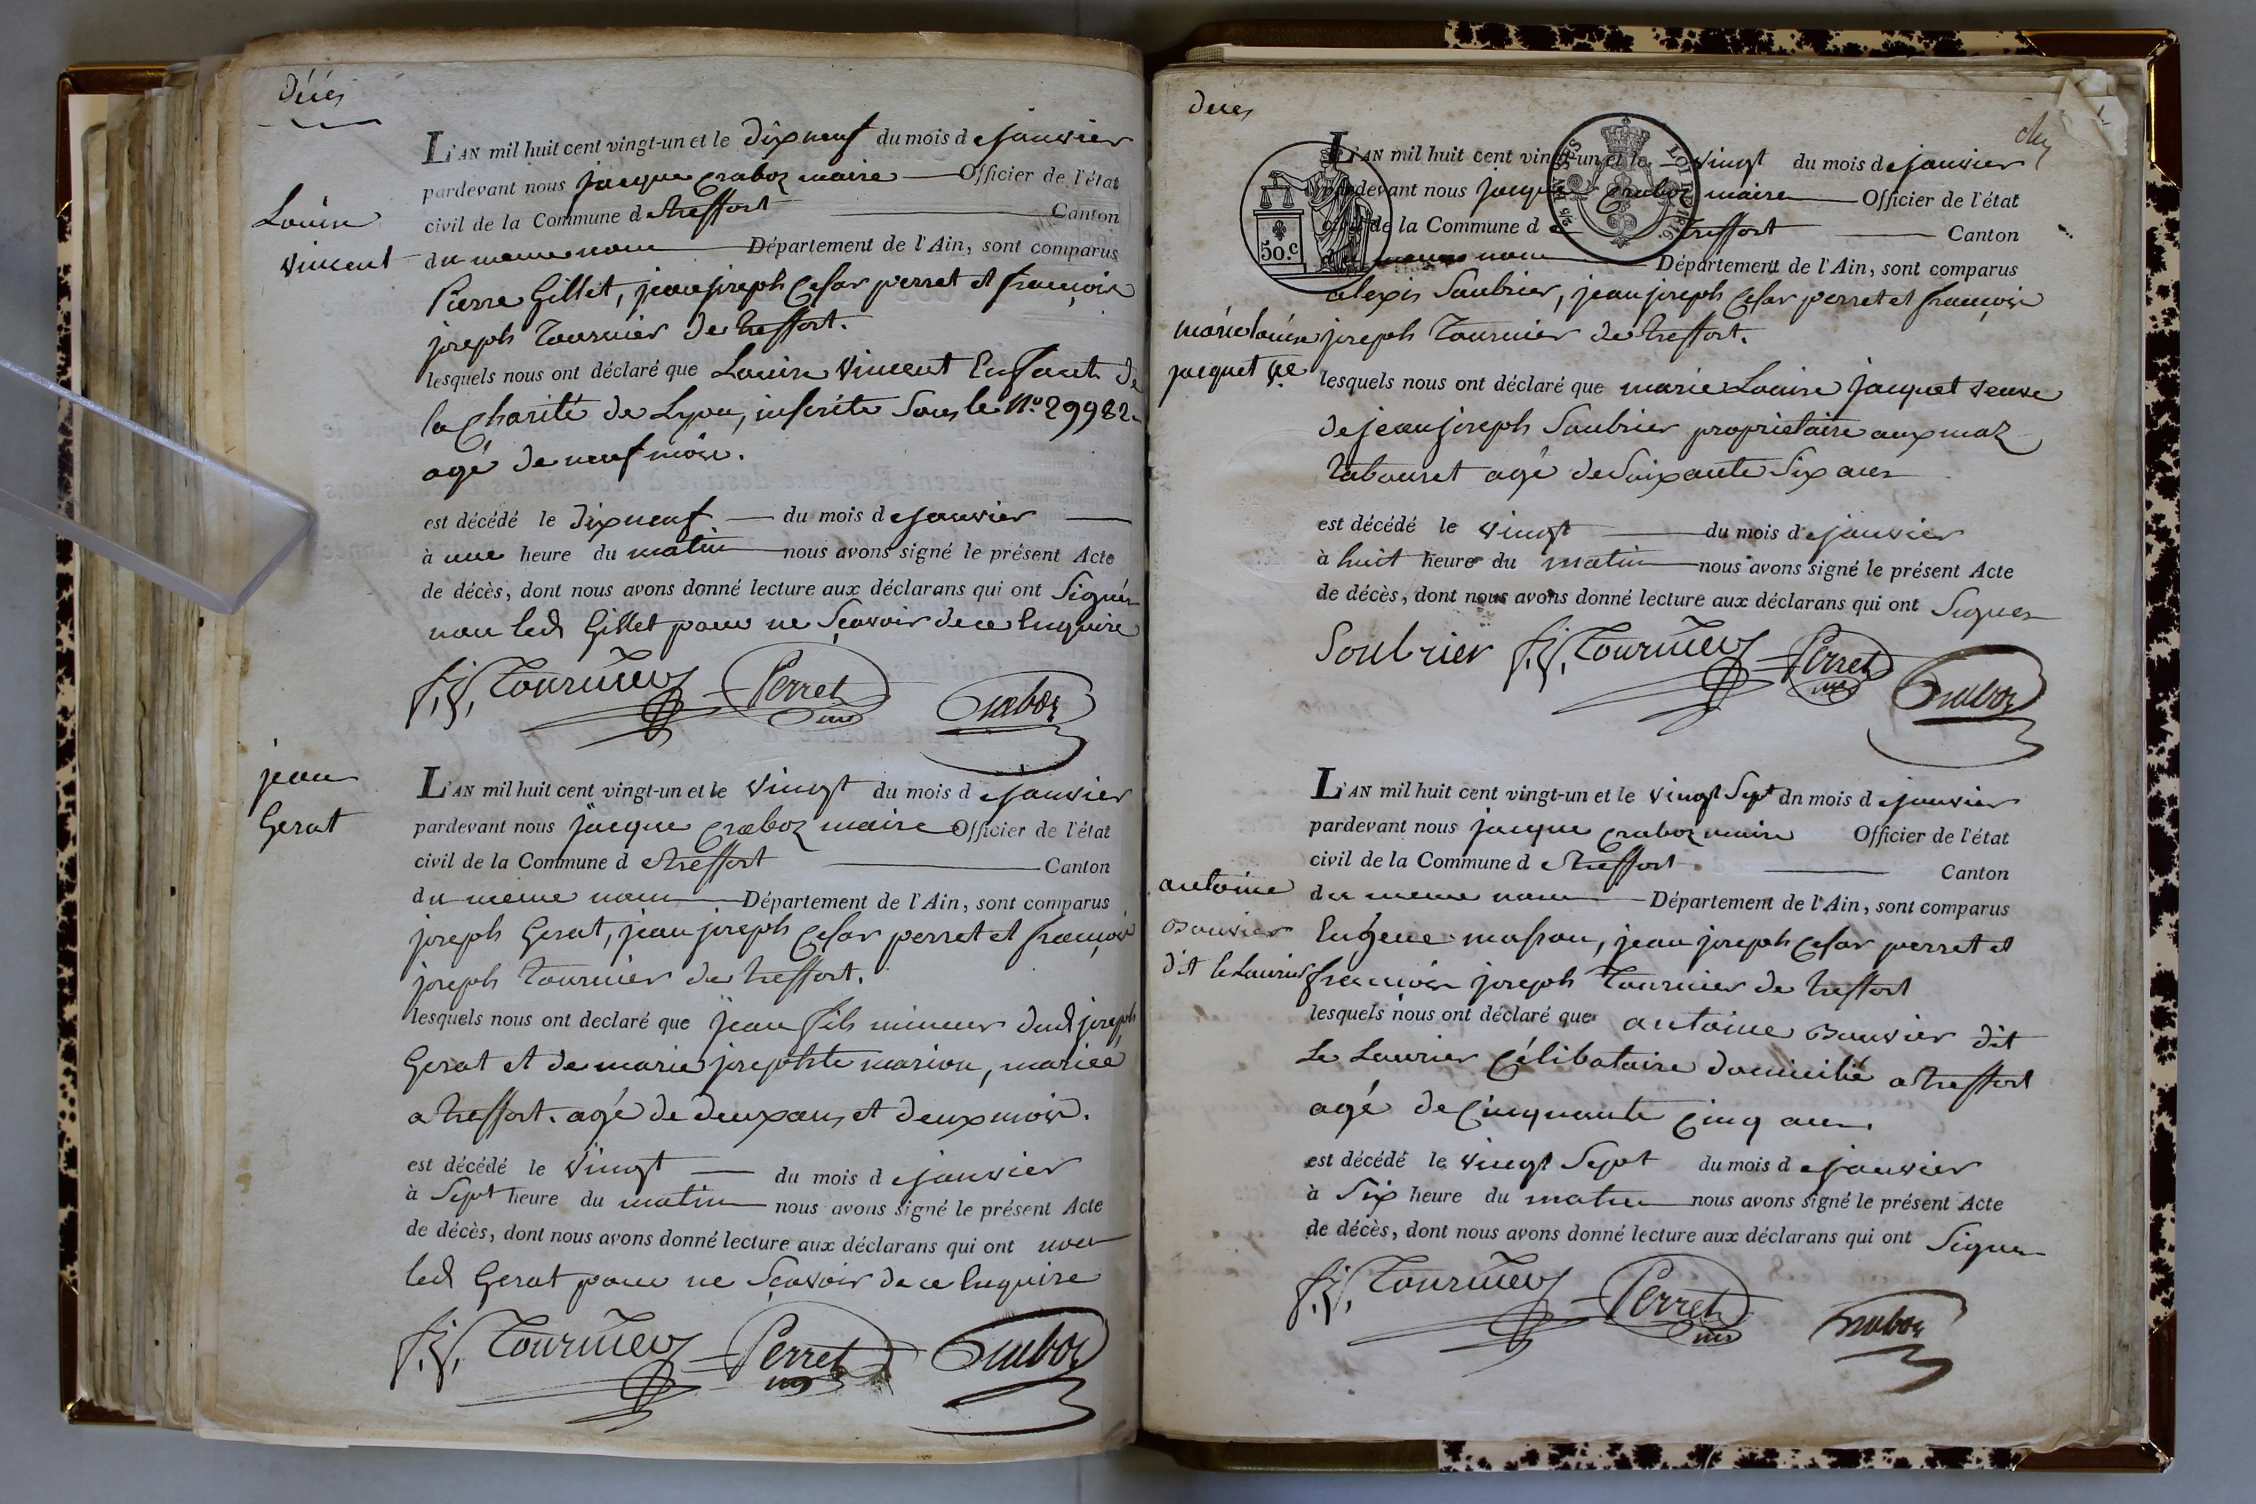 décés
L'AN mil huit cent vingt-un et le dixneuf du mois de janvier
pardevant nous jacque craboz maire Officier de l'état
civil de la Commune de treffort Canton
du meme nom Département de l'Ain, sont comparus
Louise
Vincent
Pierre Gillet, jean joseph Cesar perret et francois
joseph Tournier de treffort.
lesquels nous ont déclaré que Louise Vincent Enfant de
la Charité de Lyon, inscrite Sous le N.º 29982
agé de neuf mois.
est décédé le dixneuf du mois de janvier
à une heure du matin nous avons signé le présent Acte
de décès, dont nous avons donné lecture aux déclarans qui ont Signés
non led Gillet pour ne Sçavoir de ce Enquire
f.j. Tournier Perret Craboz
jean
Gerat
L'AN mil huit cent vingt-un et le vingt du mois de janvier
pardevant nous jacque craboz maire Officier de l'état
civil de la Commune de treffort Canton
du meme nom Département de l'Ain, sont comparus
joseph Gerat, jean joseph Cesar perret et francois
joseph Tournier de treffort.
lesquels nous ont declaré que jean fils mineur dud joseph
Gerat et de marie josephte marion, mariée
a treffort. agé de deux ans et deux mois.
est décédé le vingt du mois de janvier
à Sept heure du matin nous avons signé le présent Acte
de décès, dont nous avons donné lecture aux déclarans qui ont non
led Gerat pour ne Sçavoir de ce Enquire
f.j. Tournier Perret Craboz
décés
50.c
LOI DE 1816.
L'AN mil huit cent vingt-un et le vingt du mois de janvier
pardevant nous jacque craboz maire Officier de l'état
civil de la Commune de treffort Canton
du meme nom Département de l'Ain, sont comparus
alexis Saubrier, jean joseph Cesar perret et francois
joseph Tournier de treffort.
marie louise
jacquet Ve
lesquels nous ont déclaré que marie Louise jacquet veuve
de jean joseph Saubrier proprietaire aux maz
tabouret agé de Soixante Six ans
est décédé le vingt du mois de janvier
à huit heure du matin nous avons signé le présent Acte
de décès, dont nous avons donné lecture aux déclarans qui ont Signés
Soubrier f.j. Tournier Perret Craboz
L'AN mil huit cent vingt-un et le vingt Sept du mois de janvier
pardevant nous jacque craboz maire Officier de l'état
civil de la Commune de treffort Canton
du meme nom Département de l'Ain, sont comparus
antoine
Bouvier
dit le Laurier
Eugene masson, jean joseph Cesar perret et
francois joseph Tournier de treffort
lesquels nous ont déclaré que antoine Bouvier dit
Le Laurier Célibataire domicilié a treffort
agé de Cinquante Cinq ans.
est décédé le vingt Sept du mois de janvier
à Six heure du matin nous avons signé le présent Acte
de décès, dont nous avons donné lecture aux déclarans qui ont Signés
f.j. Tournier Perret Craboz